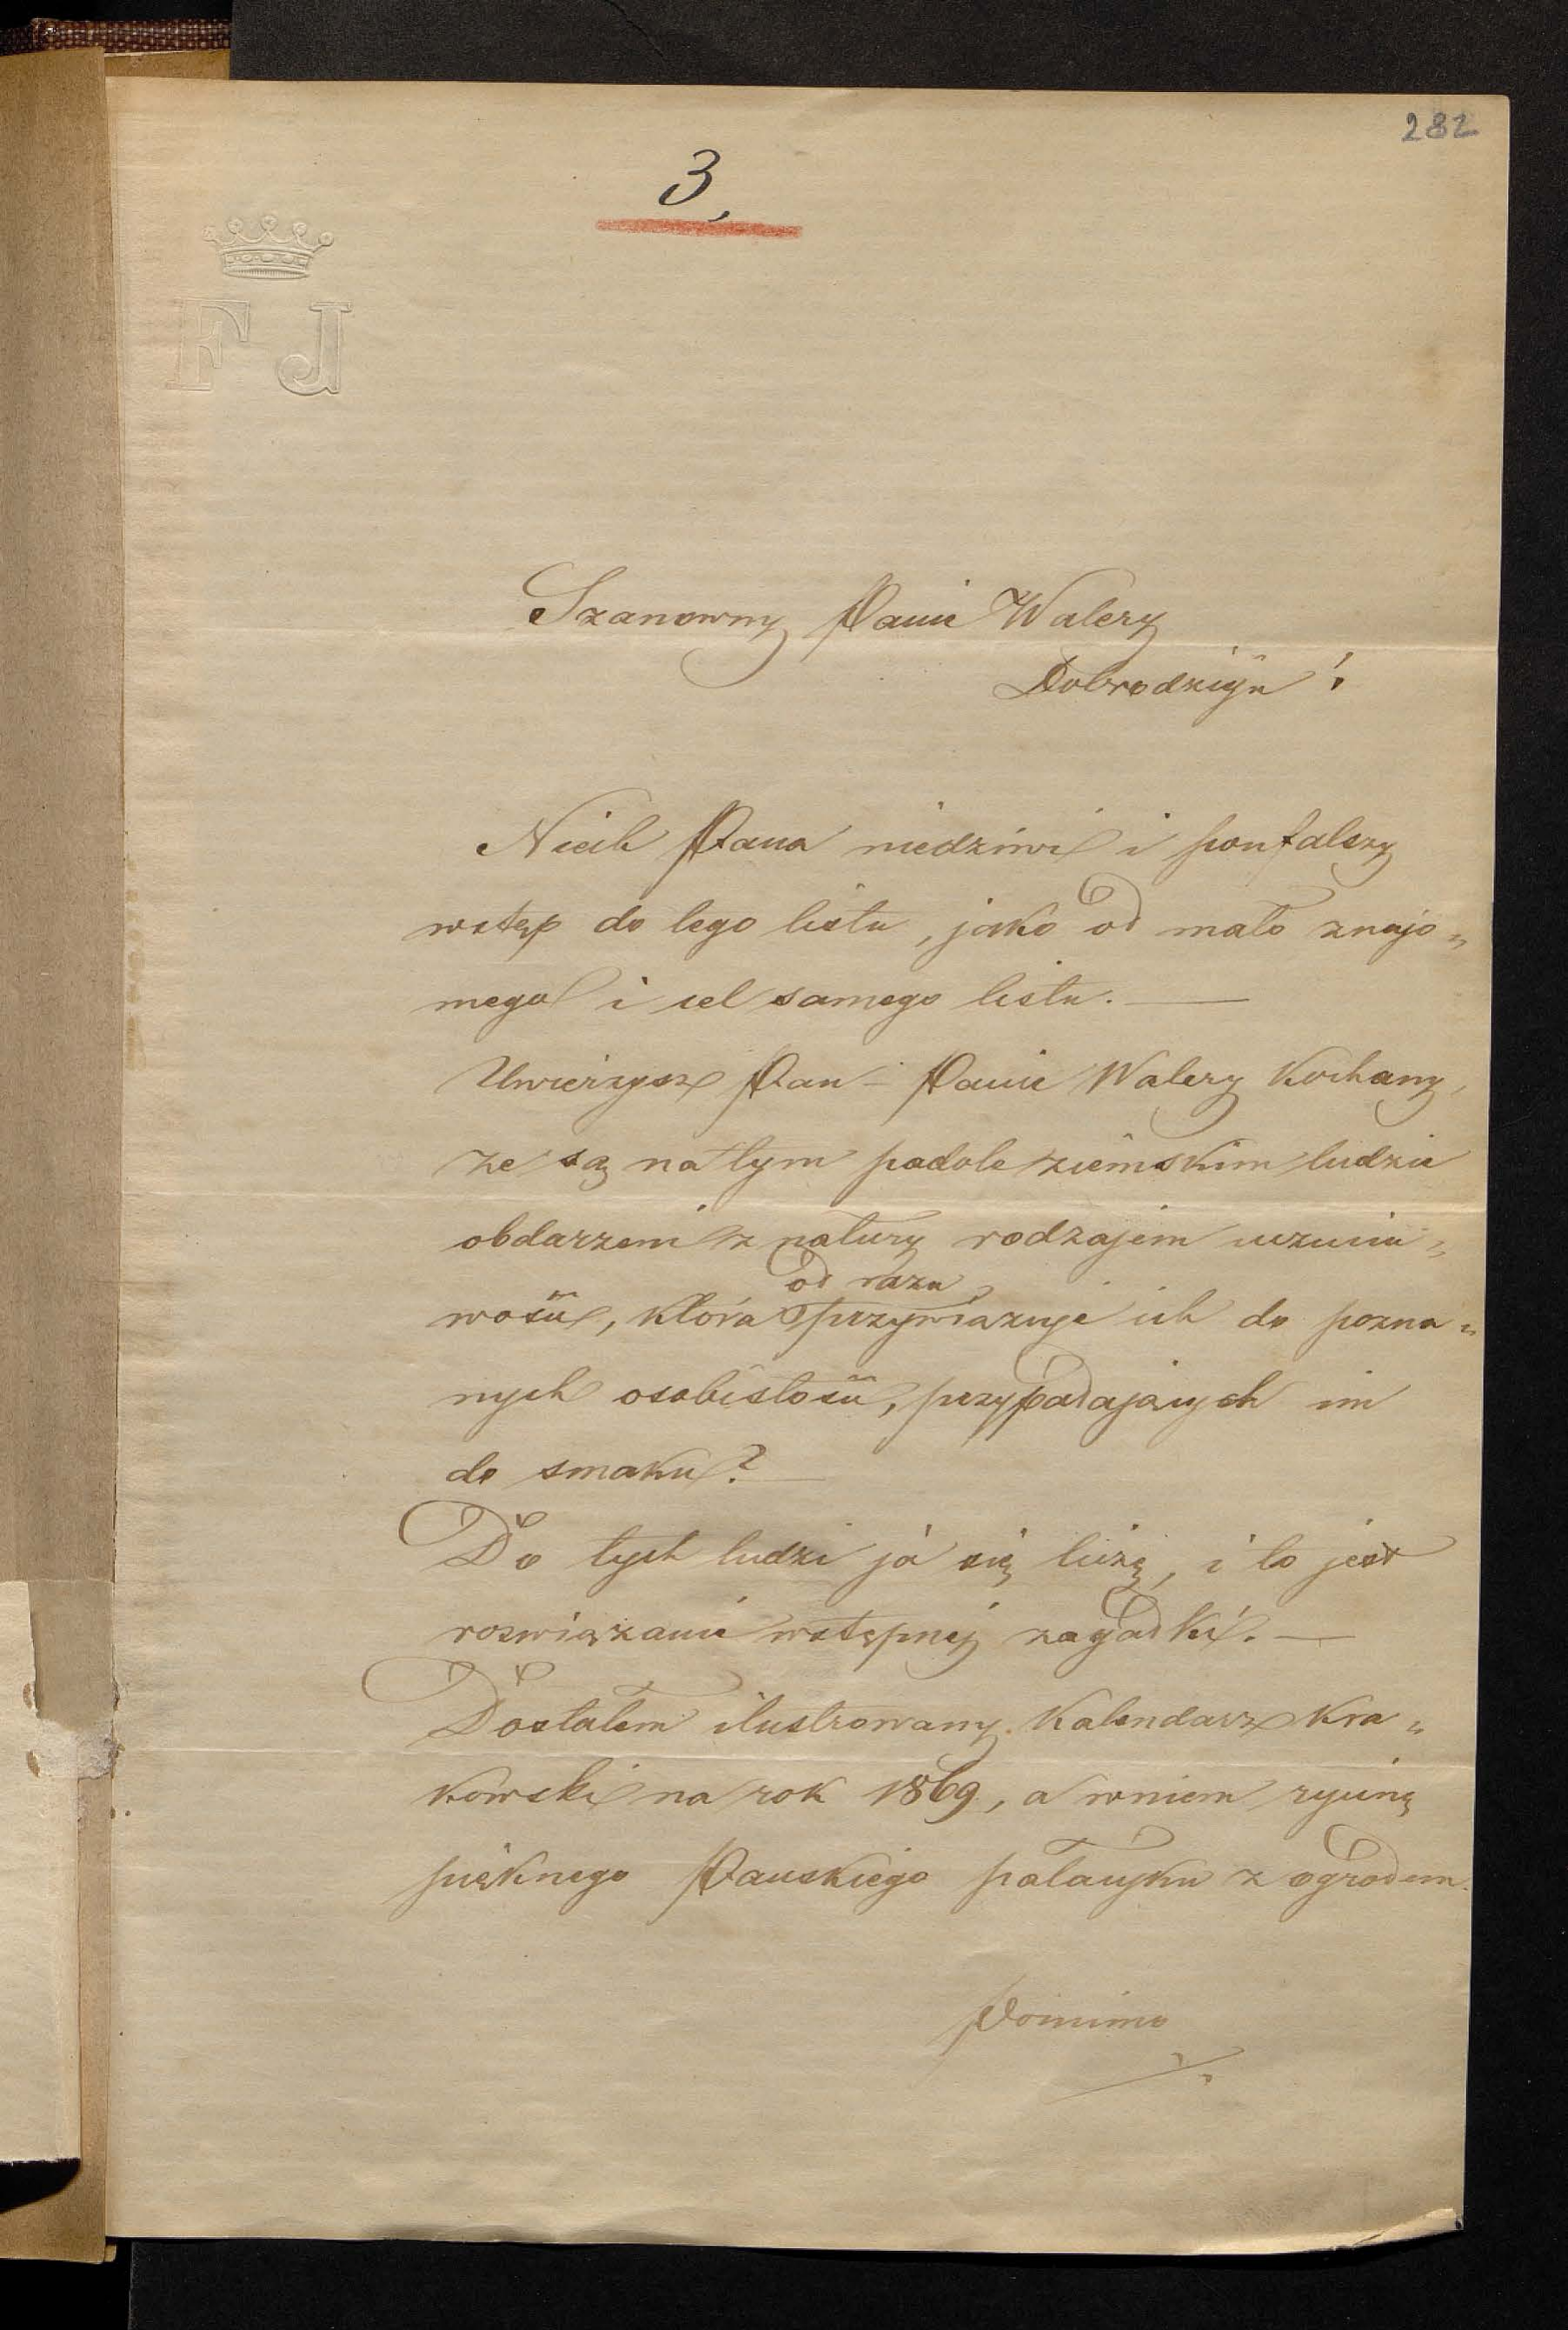 282
3,
F J
Szanowny Panie Walery
Dobrodzieju!
Niech Pana niedziwi i poufalszy
wstęp do tego listu, jako od mało znajo„
mego i cel samego listu. —
Uwierzysz Pan – Panie Walery Kochany,
że są na tym padole ziemskim ludzie
obdarzeni z natury rodzajem uczuciu„
wości, która od razu przywiązuje ich do pozna„
nych osobistości, przypadających im
do smaku? —
Do tych ludzi ja się liczę, i to jest
roswiązanie wstępnej zagadki. —
Dostałem ilustrowany Kalendarz Kra„
kowski na rok 1869, a wniem rycinę
pięknego Pańskiego pałacyku z ogrodem.
Pomimo